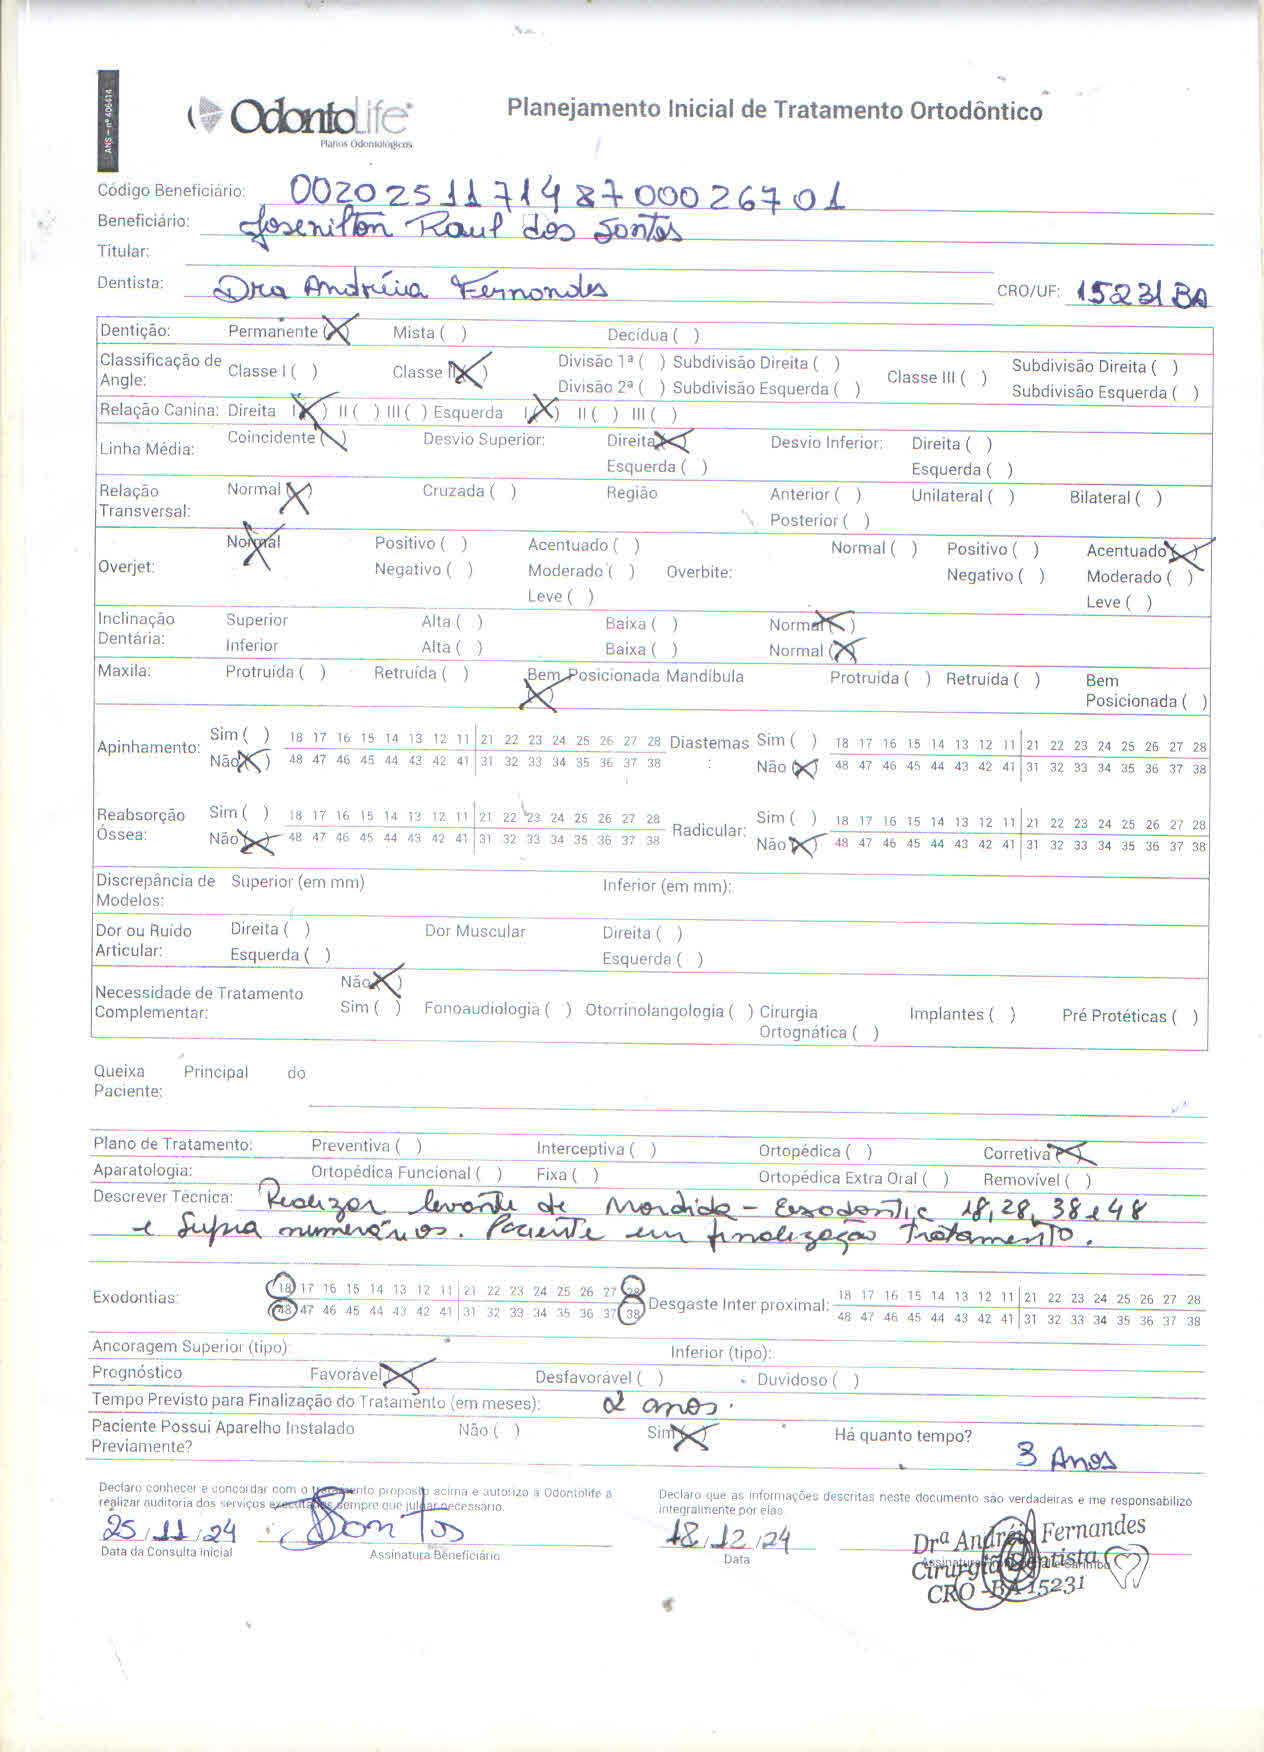 ANS - nº 406414
OdontoLife®
Planos Odontológicos
Planejamento Inicial de Tratamento Ortodôntico
Código Beneficiário: 002025117148700026701
Beneficiário: Josenilton Raul dos Santos
Titular:
Dentista: Dra Andréia Fernandes CRO/UF: 15231 BA
Dentição: Permanente (X) Mista ( ) Decídua ( )
Classificação de Angle: Classe I ( ) Classe II (X) Divisão 1ª ( ) Subdivisão Direita ( ) Divisão 2ª ( ) Subdivisão Esquerda ( ) Classe III ( ) Subdivisão Direita ( ) Subdivisão Esquerda ( )
Relação Canina: Direita I (X) II ( ) III ( ) Esquerda I (X) II ( ) III ( )
Linha Média: Coincidente (\) Desvio Superior: Direita (X) Esquerda ( ) Desvio Inferior: Direita ( ) Esquerda ( )
Relação Transversal: Normal (X) Cruzada ( ) Região Anterior ( ) Posterior ( ) Unilateral ( ) Bilateral ( )
Overjet: Normal X Positivo ( ) Negativo ( ) Acentuado ( ) Moderado ( ) Leve ( ) Overbite: Normal ( ) Positivo ( ) Negativo ( ) Acentuado (X) Moderado ( ) Leve ( )
Inclinação Dentária: Superior Alta ( ) Baixa ( ) Normal (X)
Inferior Alta ( ) Baixa ( ) Normal (X)
Maxila: Protruída ( ) Retruída ( ) Bem Posicionada (X) Mandíbula Protruída ( ) Retruída ( ) Bem Posicionada ( )
Apinhamento: Sim ( ) 18 17 16 15 14 13 12 11 21 22 23 24 25 26 27 28 Diastemas : Sim ( ) 18 17 16 15 14 13 12 11 21 22 23 24 25 26 27 28
Não (X) 48 47 46 45 44 43 42 41 31 32 33 34 35 36 37 38 Não (X) 48 47 46 45 44 43 42 41 31 32 33 34 35 36 37 38
Reabsorção Óssea: Sim ( ) 18 17 16 15 14 13 12 11 21 22 23 24 25 26 27 28 Radicular: Sim ( ) 18 17 16 15 14 13 12 11 21 22 23 24 25 26 27 28
Não (X) 48 47 46 45 44 43 42 41 31 32 33 34 35 36 37 38 Não (X) 48 47 46 45 44 43 42 41 31 32 33 34 35 36 37 38
Discrepância de Modelos: Superior (em mm) Inferior (em mm):
Dor ou Ruído Articular: Direita ( ) Esquerda ( ) Dor Muscular Direita ( ) Esquerda ( )
Necessidade de Tratamento Complementar: Não (X)
Sim ( ) Fonoaudiologia ( ) Otorrinolangologia ( ) Cirurgia Ortognática ( ) Implantes ( ) Pré Protéticas ( )
Queixa Principal do Paciente:
Plano de Tratamento: Preventiva ( ) Interceptiva ( ) Ortopédica ( ) Corretiva (X)
Aparatologia: Ortopédica Funcional ( ) Fixa ( ) Ortopédica Extra Oral ( ) Removível ( )
Descrever Técnica: Realizar levante de Mordida - Exodontia 18, 28, 38 e 48
e Supra numerários. Paciente em finalização tratamento.
Exodontias: 18 17 16 15 14 13 12 11 21 22 23 24 25 26 27 28 Desgaste Inter proximal: 18 17 16 15 14 13 12 11 21 22 23 24 25 26 27 28
48 47 46 45 44 43 42 41 31 32 33 34 35 36 37 38 48 47 46 45 44 43 42 41 31 32 33 34 35 36 37 38
Ancoragem Superior (tipo): Inferior (tipo):
Prognóstico Favorável (X) Desfavorável ( ) Duvidoso ( )
Tempo Previsto para Finalização do Tratamento (em meses): 2 anos.
Paciente Possui Aparelho Instalado Previamente? Não ( ) Sim (X) Há quanto tempo? 3 Anos
Declaro conhecer e concordar com o tratamento proposto acima e autorizo a Odontolife a
realizar auditoria dos serviços executados sempre que julgar necessário.
Declaro que as informações descritas neste documento são verdadeiras e me responsabilizo
integralmente por elas.
25/11/24 Santos 18/12/24
Data da Consulta Inicial Assinatura Beneficiário Data
Drª Andréia Fernandes
Cirurgiã Dentista
CRO-BA 15231